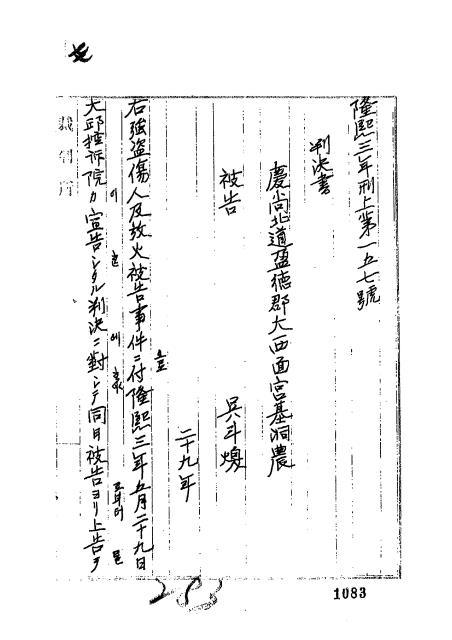 隆熙三年刑上第一五七號
判決書
慶尚北道盈德郡大西面宮基洞農
被告 吳斗煥
二十九年
右強盗傷人及放火被告事件ニ付隆熙三年五月二十九日
大邱控訴院カ宣告シタル判決ニ對シテ同月被告ヨリ上告ヲ
裁判所
1083